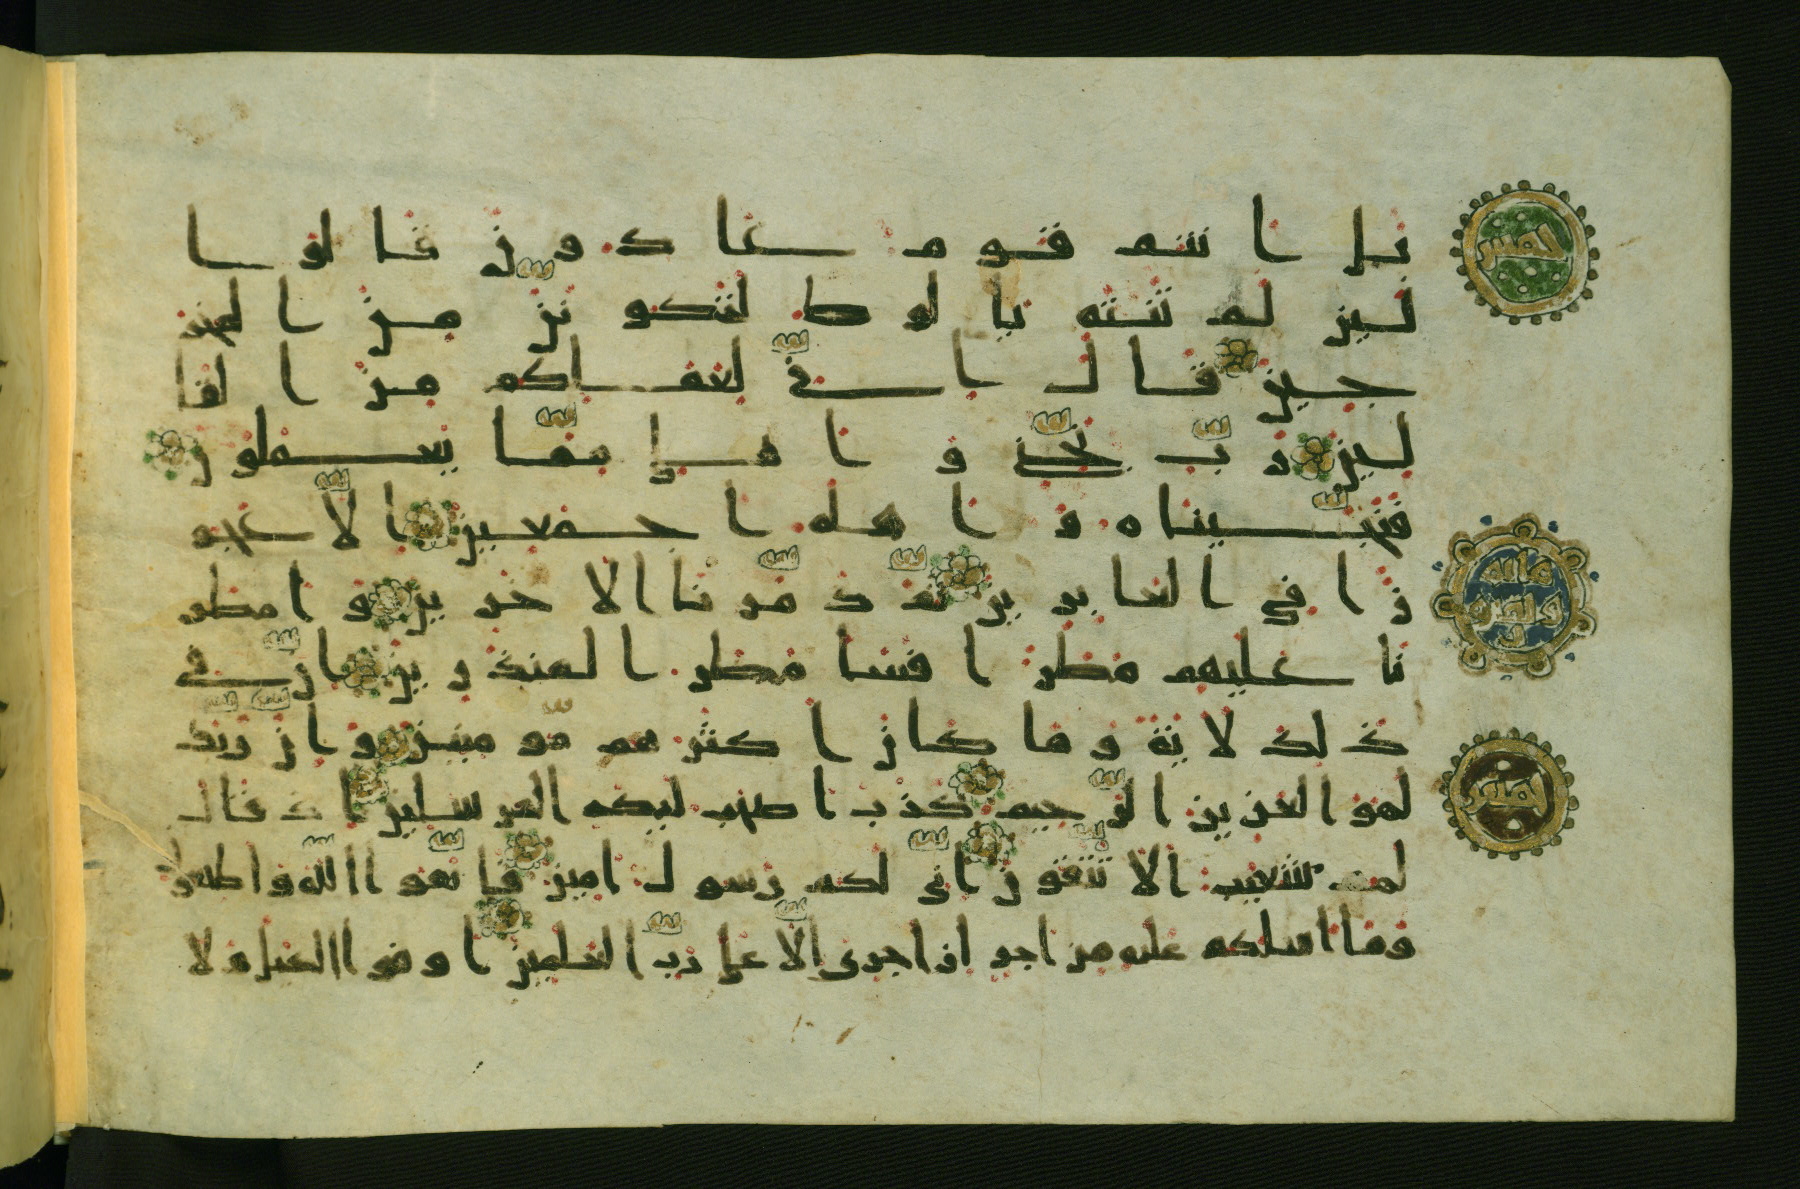 بل انتم قوم عادون قالوا
لين لم تنته يا لوط لتكونن من المخر
جين قال اني لعملكم من القا
لين رب نجني واهلي مما يعملون
فنجيناه واهله اجمعين الا عجو
زا في الغابرين ثم دمرنا الاخرين وامطر
نا عليهم مطرا فسا مطر المنذرين ان في
ذلك لاية وما كان اكثرهم مومنين وان ربك
لهو العزيز الرحيم كذب اصحب ليكه المرسلين اذ قال
لهم شعيب الا تتقون اني لكم رسول امين فاتقوا الله واطيعو
وما اسلكم عليه من اجر ان اجري الا على رب العلمين اوفوا الكيل ولا
خمس
خمس